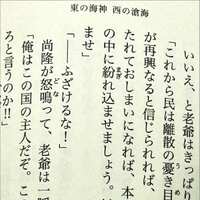 東の海神 西の滄海
いいえ、と老爺はきっぱり
「これから民は離散の憂き目
が再興なると信じられれば、
たれておしまいになれば、本
の中に紛れ込ませましょう。
ませ」
「――ふざけるな!
尚隆が怒鳴って、老爺は一瞬
「俺はこの国の主人だぞ。こ
ろと言うのか!!